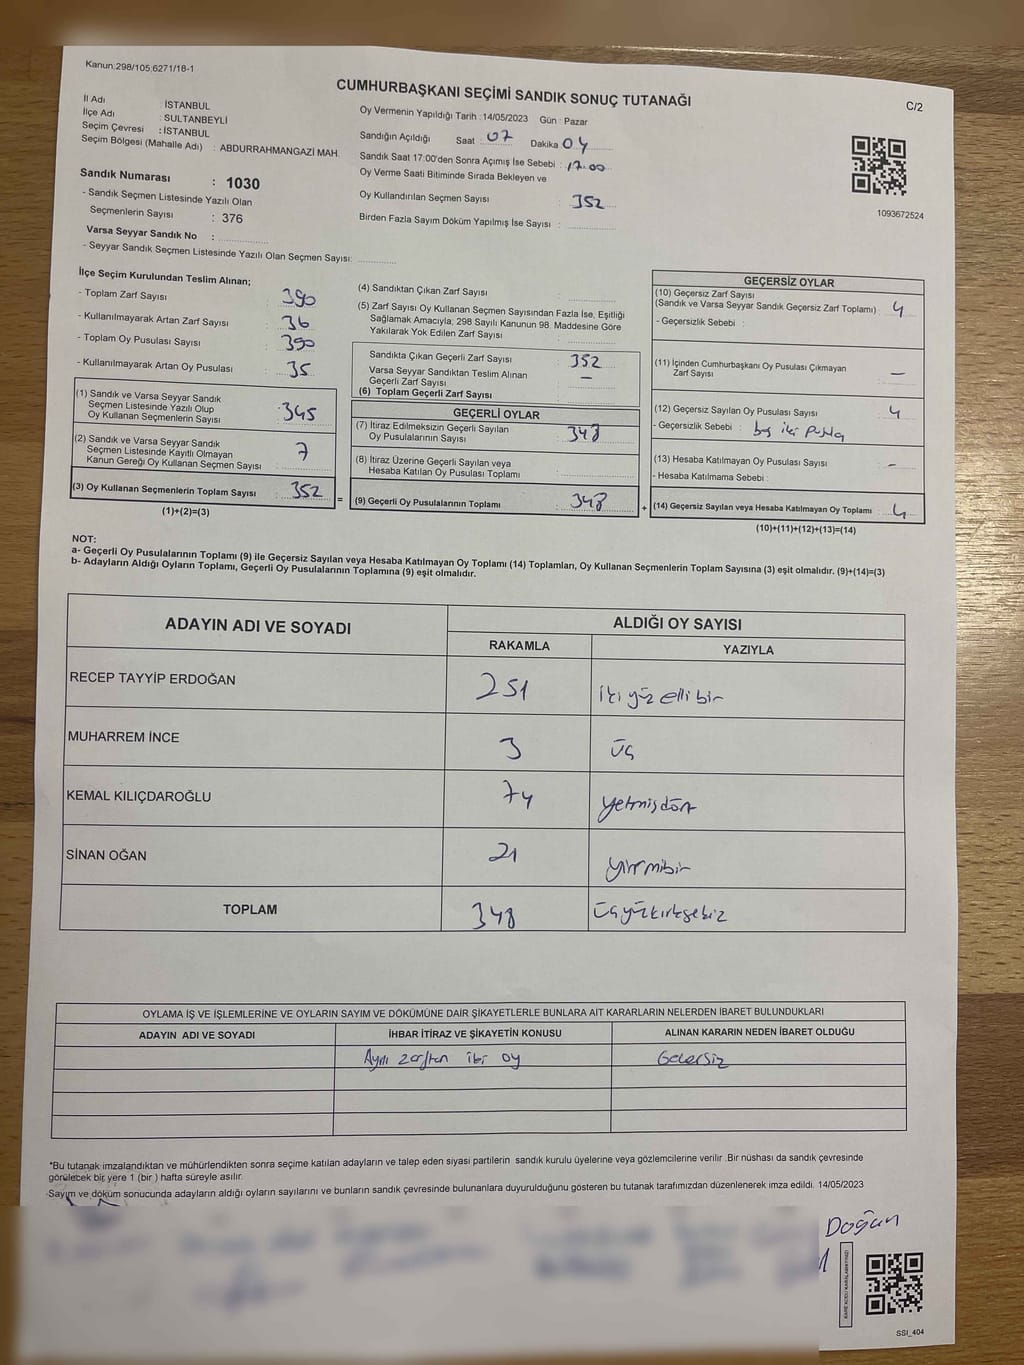 Kanun:298/105;6271/18-1
CUMHURBAŞKANI SEÇİMİ SANDIK SONUÇ TUTANAĞI
C/2
İl Adı : İSTANBUL
İlçe Adı : SULTANBEYLİ
Seçim Çevresi : İSTANBUL
Seçim Bölgesi (Mahalle Adı) : ABDURRAHMANGAZİ MAH.
Sandık Numarası : 1030
- Sandık Seçmen Listesinde Yazılı Olan
Seçmenlerin Sayısı : 376
Varsa Seyyar Sandık No :
- Seyyar Sandık Seçmen Listesinde Yazılı Olan Seçmen Sayısı:
Oy Vermenin Yapıldığı Tarih :14/05/2023 Gün : Pazar
Sandığın Açıldığı Saat : 07 Dakika 04
Sandık Saat 17:00'den Sonra Açımış İse Sebebi : 17.00
Oy Verme Saati Bitiminde Sırada Bekleyen ve
Oy Kullandırılan Seçmen Sayısı : 352
Birden Fazla Sayım Döküm Yapılmış İse Sayısı :
1093672524
İlçe Seçim Kurulundan Teslim Alınan;
- Toplam Zarf Sayısı : 390
- Kullanılmayarak Artan Zarf Sayısı : 36
- Toplam Oy Pusulası Sayısı : 390
- Kullanılmayarak Artan Oy Pusulası : 35
(1) Sandık ve Varsa Seyyar Sandık
Seçmen Listesinde Yazılı Olup
Oy Kullanan Seçmenlerin Sayısı : 345
(2) Sandık ve Varsa Seyyar Sandık
Seçmen Listesinde Kayıtlı Olmayan
Kanun Gereği Oy Kullanan Seçmen Sayısı : 7
(3) Oy Kullanan Seçmenlerin Toplam Sayısı : 352
(1)+(2)=(3)
(4) Sandıktan Çıkan Zarf Sayısı :
(5) Zarf Sayısı Oy Kullanan Seçmen Sayısından Fazla İse, Eşitliği
Sağlamak Amacıyla; 298 Sayılı Kanunun 98. Maddesine Göre
Yakılarak Yok Edilen Zarf Sayısı :
Sandıkta Çıkan Geçerli Zarf Sayısı : 352
Varsa Seyyar Sandıktan Teslim Alınan
Geçerli Zarf Sayısı : —
(6) Toplam Geçerli Zarf Sayısı :
=
GEÇERLİ OYLAR
(7) İtiraz Edilmeksizin Geçerli Sayılan
Oy Pusulalarının Sayısı : 348
(8) İtiraz Üzerine Geçerli Sayılan veya
Hesaba Katılan Oy Pusulası Toplamı :
(9) Geçerli Oy Pusulalarının Toplamı : 348
+
GEÇERSİZ OYLAR
(10) Geçersiz Zarf Sayısı
(Sandık ve Varsa Seyyar Sandık Geçersiz Zarf Toplamı) : 4
- Geçersizlik Sebebi :
(11) İçinden Cumhurbaşkanı Oy Pusulası Çıkmayan
Zarf Sayısı : —
(12) Geçersiz Sayılan Oy Pusulası Sayısı : 4
- Geçersizlik Sebebi : boş iki pusula
(13) Hesaba Katılmayan Oy Pusulası Sayısı : —
- Hesaba Katılmama Sebebi :
(14) Geçersiz Sayılan veya Hesaba Katılmayan Oy Toplamı : 4
(10)+(11)+(12)+(13)=(14)
NOT:
a- Geçerli Oy Pusulalarının Toplamı (9) ile Geçersiz Sayılan veya Hesaba Katılmayan Oy Toplamı (14) Toplamları, Oy Kullanan Seçmenlerin Toplam Sayısına (3) eşit olmalıdır. (9)+(14)=(3)
b- Adayların Aldığı Oyların Toplamı, Geçerli Oy Pusulalarının Toplamına (9) eşit olmalıdır.
ADAYIN ADI VE SOYADI
ALDIĞI OY SAYISI
RAKAMLA YAZIYLA
RECEP TAYYİP ERDOĞAN 251 iki yüz elli bir
MUHARREM İNCE 3 üç
KEMAL KILIÇDAROĞLU 74 yetmişdört
SİNAN OĞAN 21 yirmibir
TOPLAM 348 üçyüzkırksekiz
OYLAMA İŞ VE İŞLEMLERİNE VE OYLARIN SAYIM VE DÖKÜMÜNE DAİR ŞİKAYETLERLE BUNLARA AİT KARARLARIN NELERDEN İBARET BULUNDUKLARI
ADAYIN ADI VE SOYADI İHBAR İTİRAZ VE ŞİKAYETİN KONUSU ALINAN KARARIN NEDEN İBARET OLDUĞU
Aynı zarftan iki oy Geçersiz
*Bu tutanak imzalandıktan ve mühürlendikten sonra seçime katılan adayların ve talep eden siyasi partilerin sandık kurulu üyelerine veya gözlemcilerine verilir .Bir nüshası da sandık çevresinde
görülecek bir yere 1 (bir ) hafta süreyle asılır.
Sayım ve döküm sonucunda adayların aldığı oyların sayılarını ve bunların sandık çevresinde bulunanlara duyurulduğunu gösteren bu tutanak tarafımızdan düzenlenerek imza edildi. 14/05/2023
Doğan
SSI_404